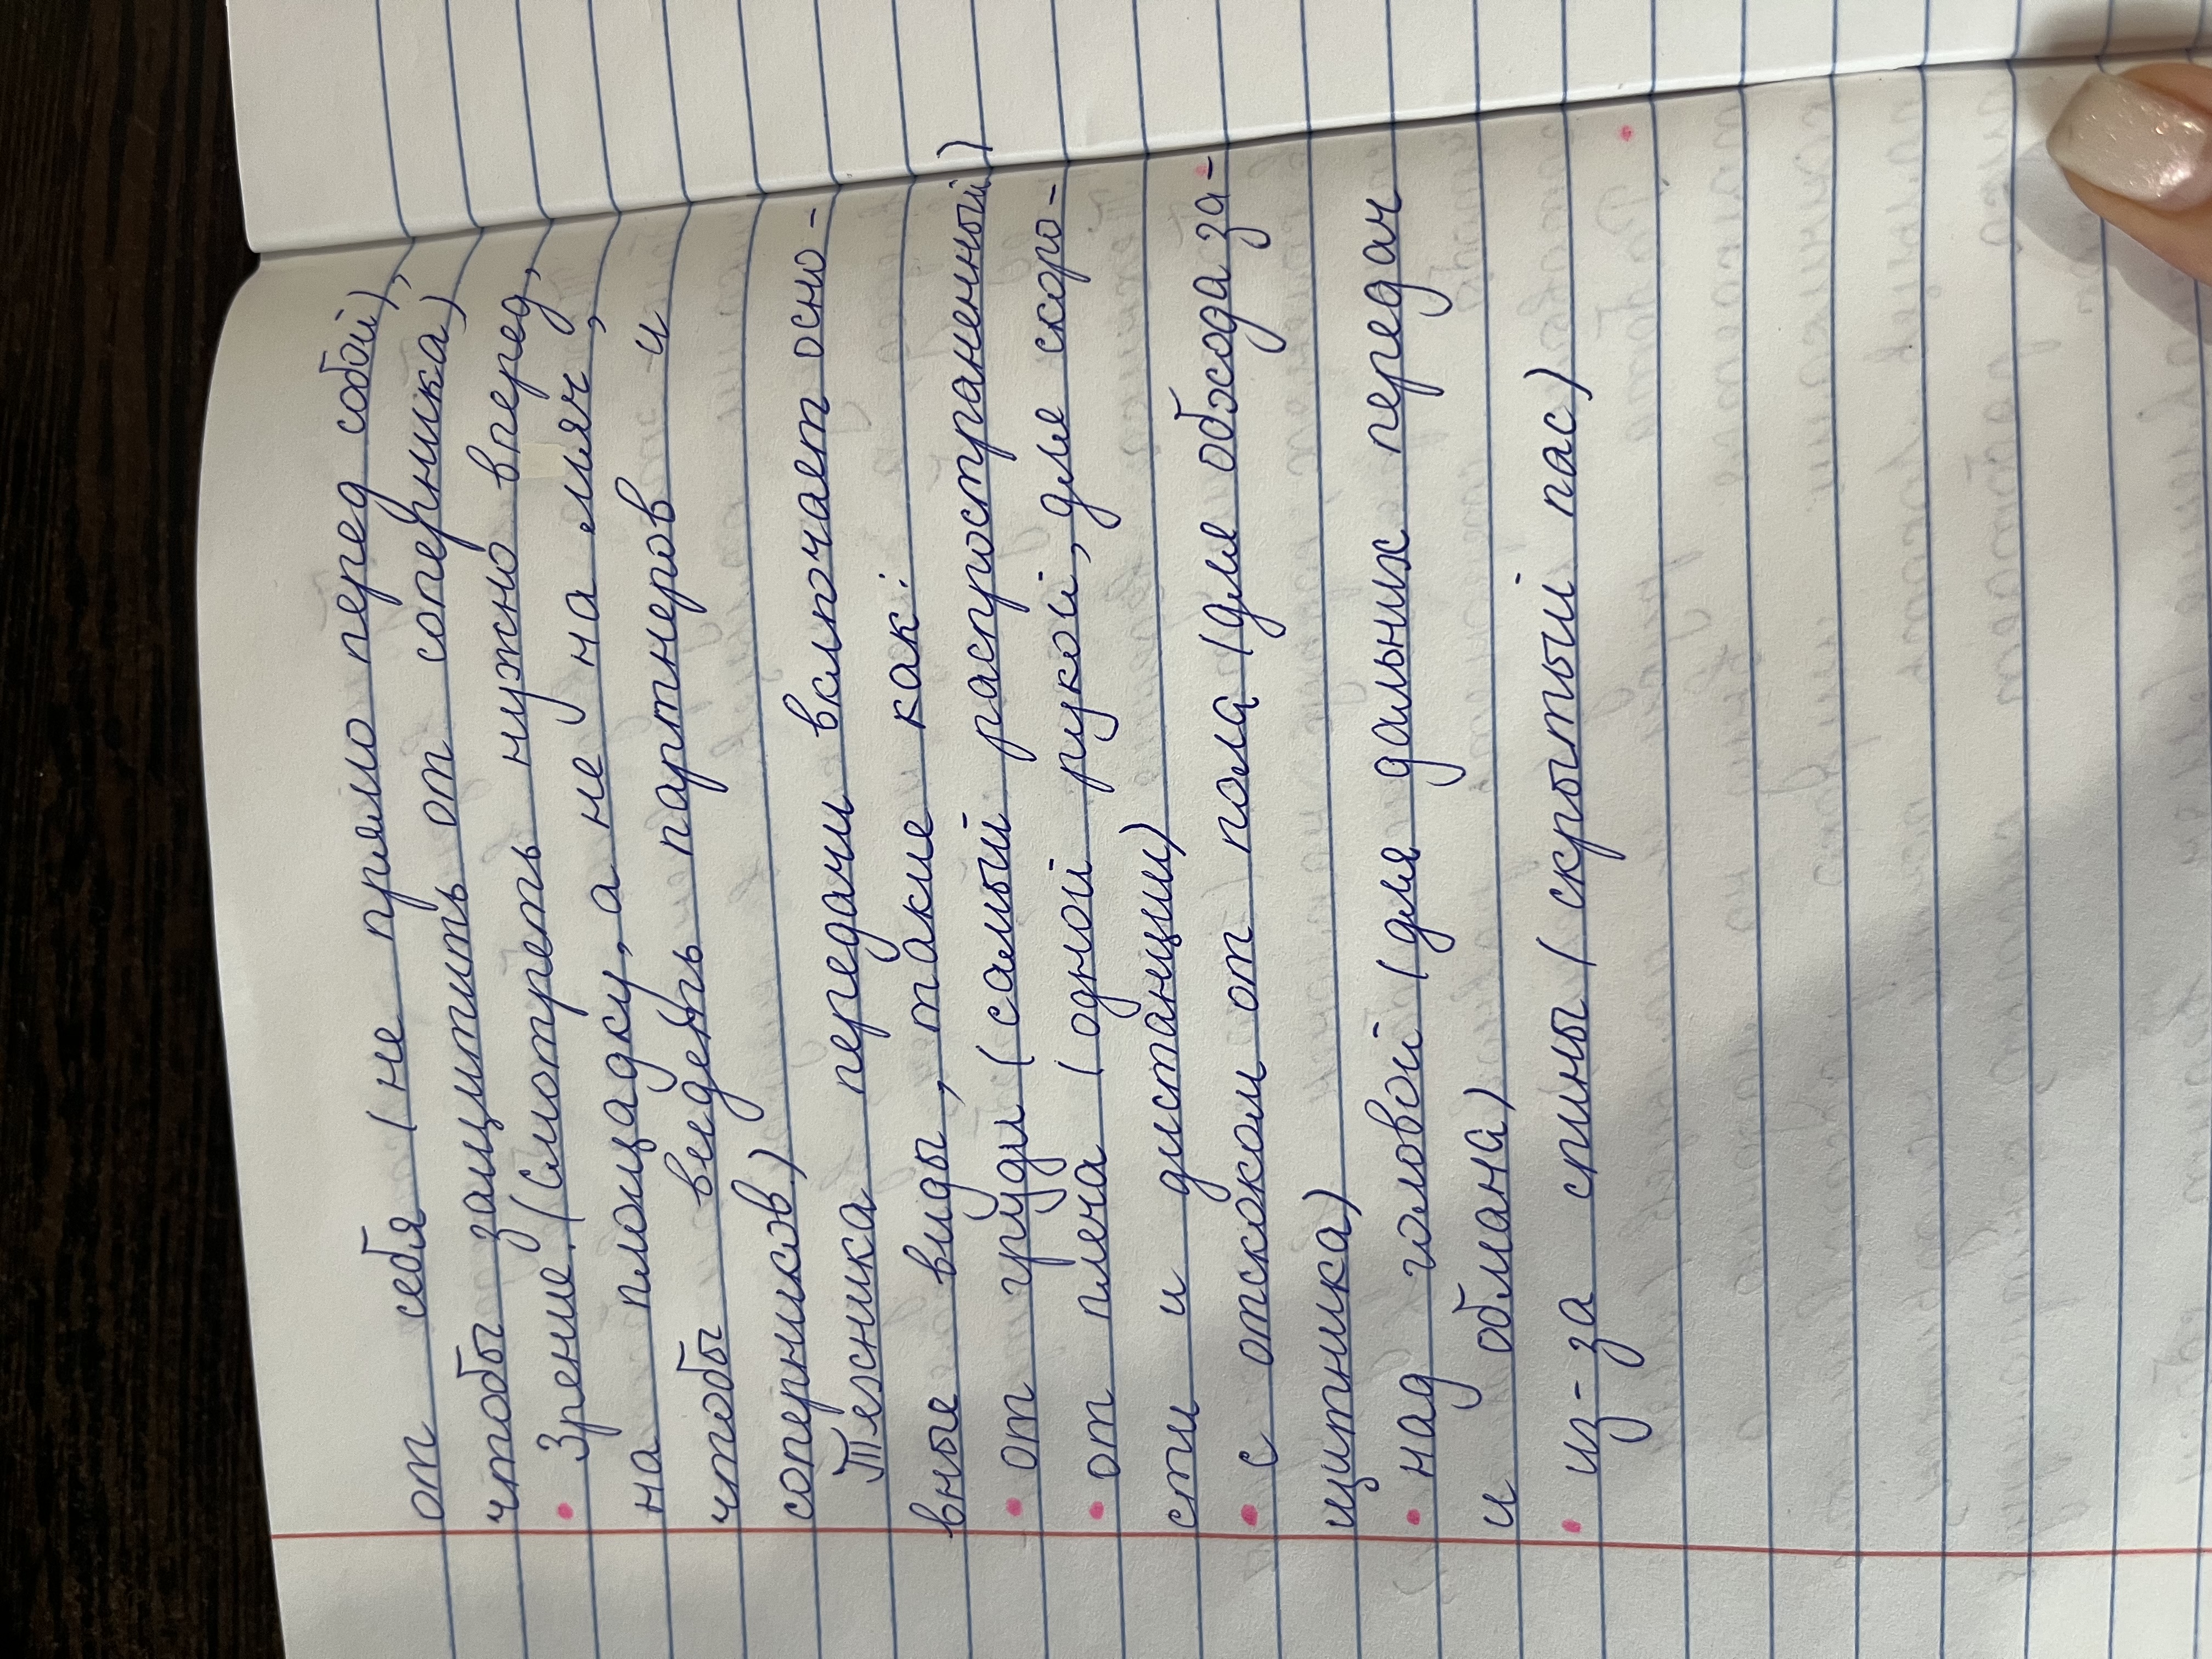 от себя (не прямо перед собой),
чтобы защитить от соперника)
• Зрение. (Смотреть нужно вперед,
на площадку, а не на мяч,
чтобы видеть партнеров и
соперников)
Техника передачи включает осно-
вные виды, такие как:
• от груди (самый распространенный)
• от плеча (одной рукой, для скоро-
сти и дистанции)
• с отскоком от пола (для обхода за-
щитника)
• над головой (для дальних передач
и обмана)
• из-за спины (скрытый пас)